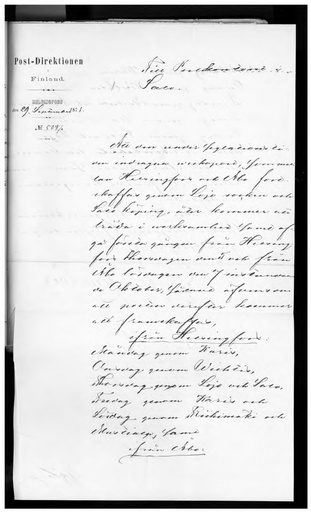 Post-Direktionen
i
Finland.
HELSINGFORS
den 29 September 187
№
Till Postkontoret i
Salo.
Att den under Seglationsti-
den indragna veckopost, som mel-
lan Helsingfors och Åbo fort-
skaffas genom Lojo socken och
Salo köping, åter kommer att
träda i verksamhet samt af-
gå första gången från Helsing-
fors Thorsdagen den och från
Åbo lördagen den 7 instundan-
de Oktober, sådant äfvensom
att posten derefter kommer
att framskaffas,
ifrån Helsingfors:
Måndag genom Karis,
Onsdag genom
Thorsdag genom Lojo och Salo,
Fredag genom Karis och
Lördag genom Riihimäki och
samt
från Åbo: